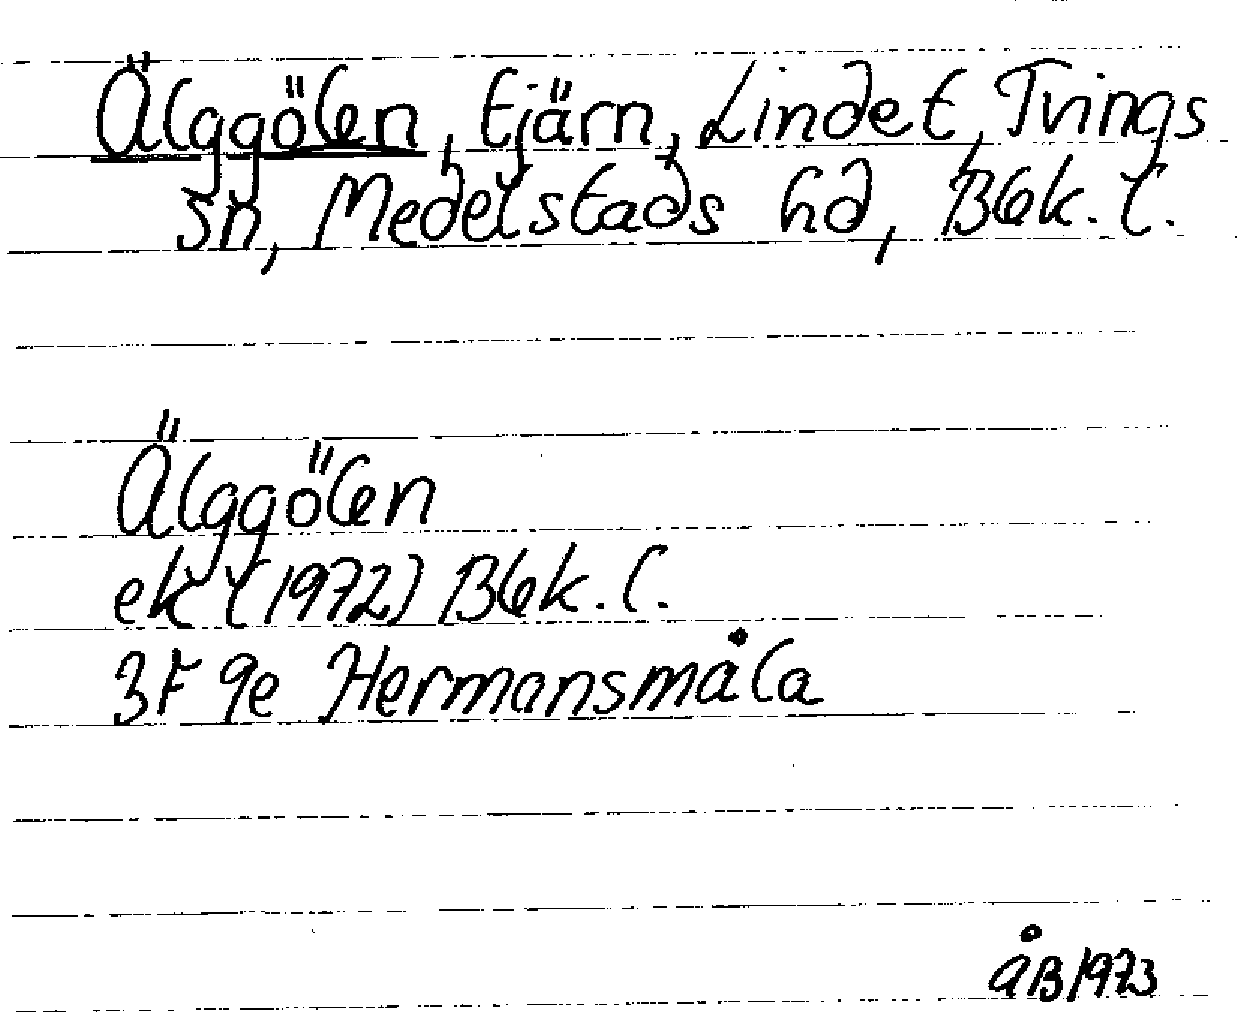 Älggölen, tjärn, Lindet, Tvings
sn, Medelstads hd, Blek. l.
Älggölen
ek (1972) Blek. l.
3F 9e Hermansmåla
ÅB 1973